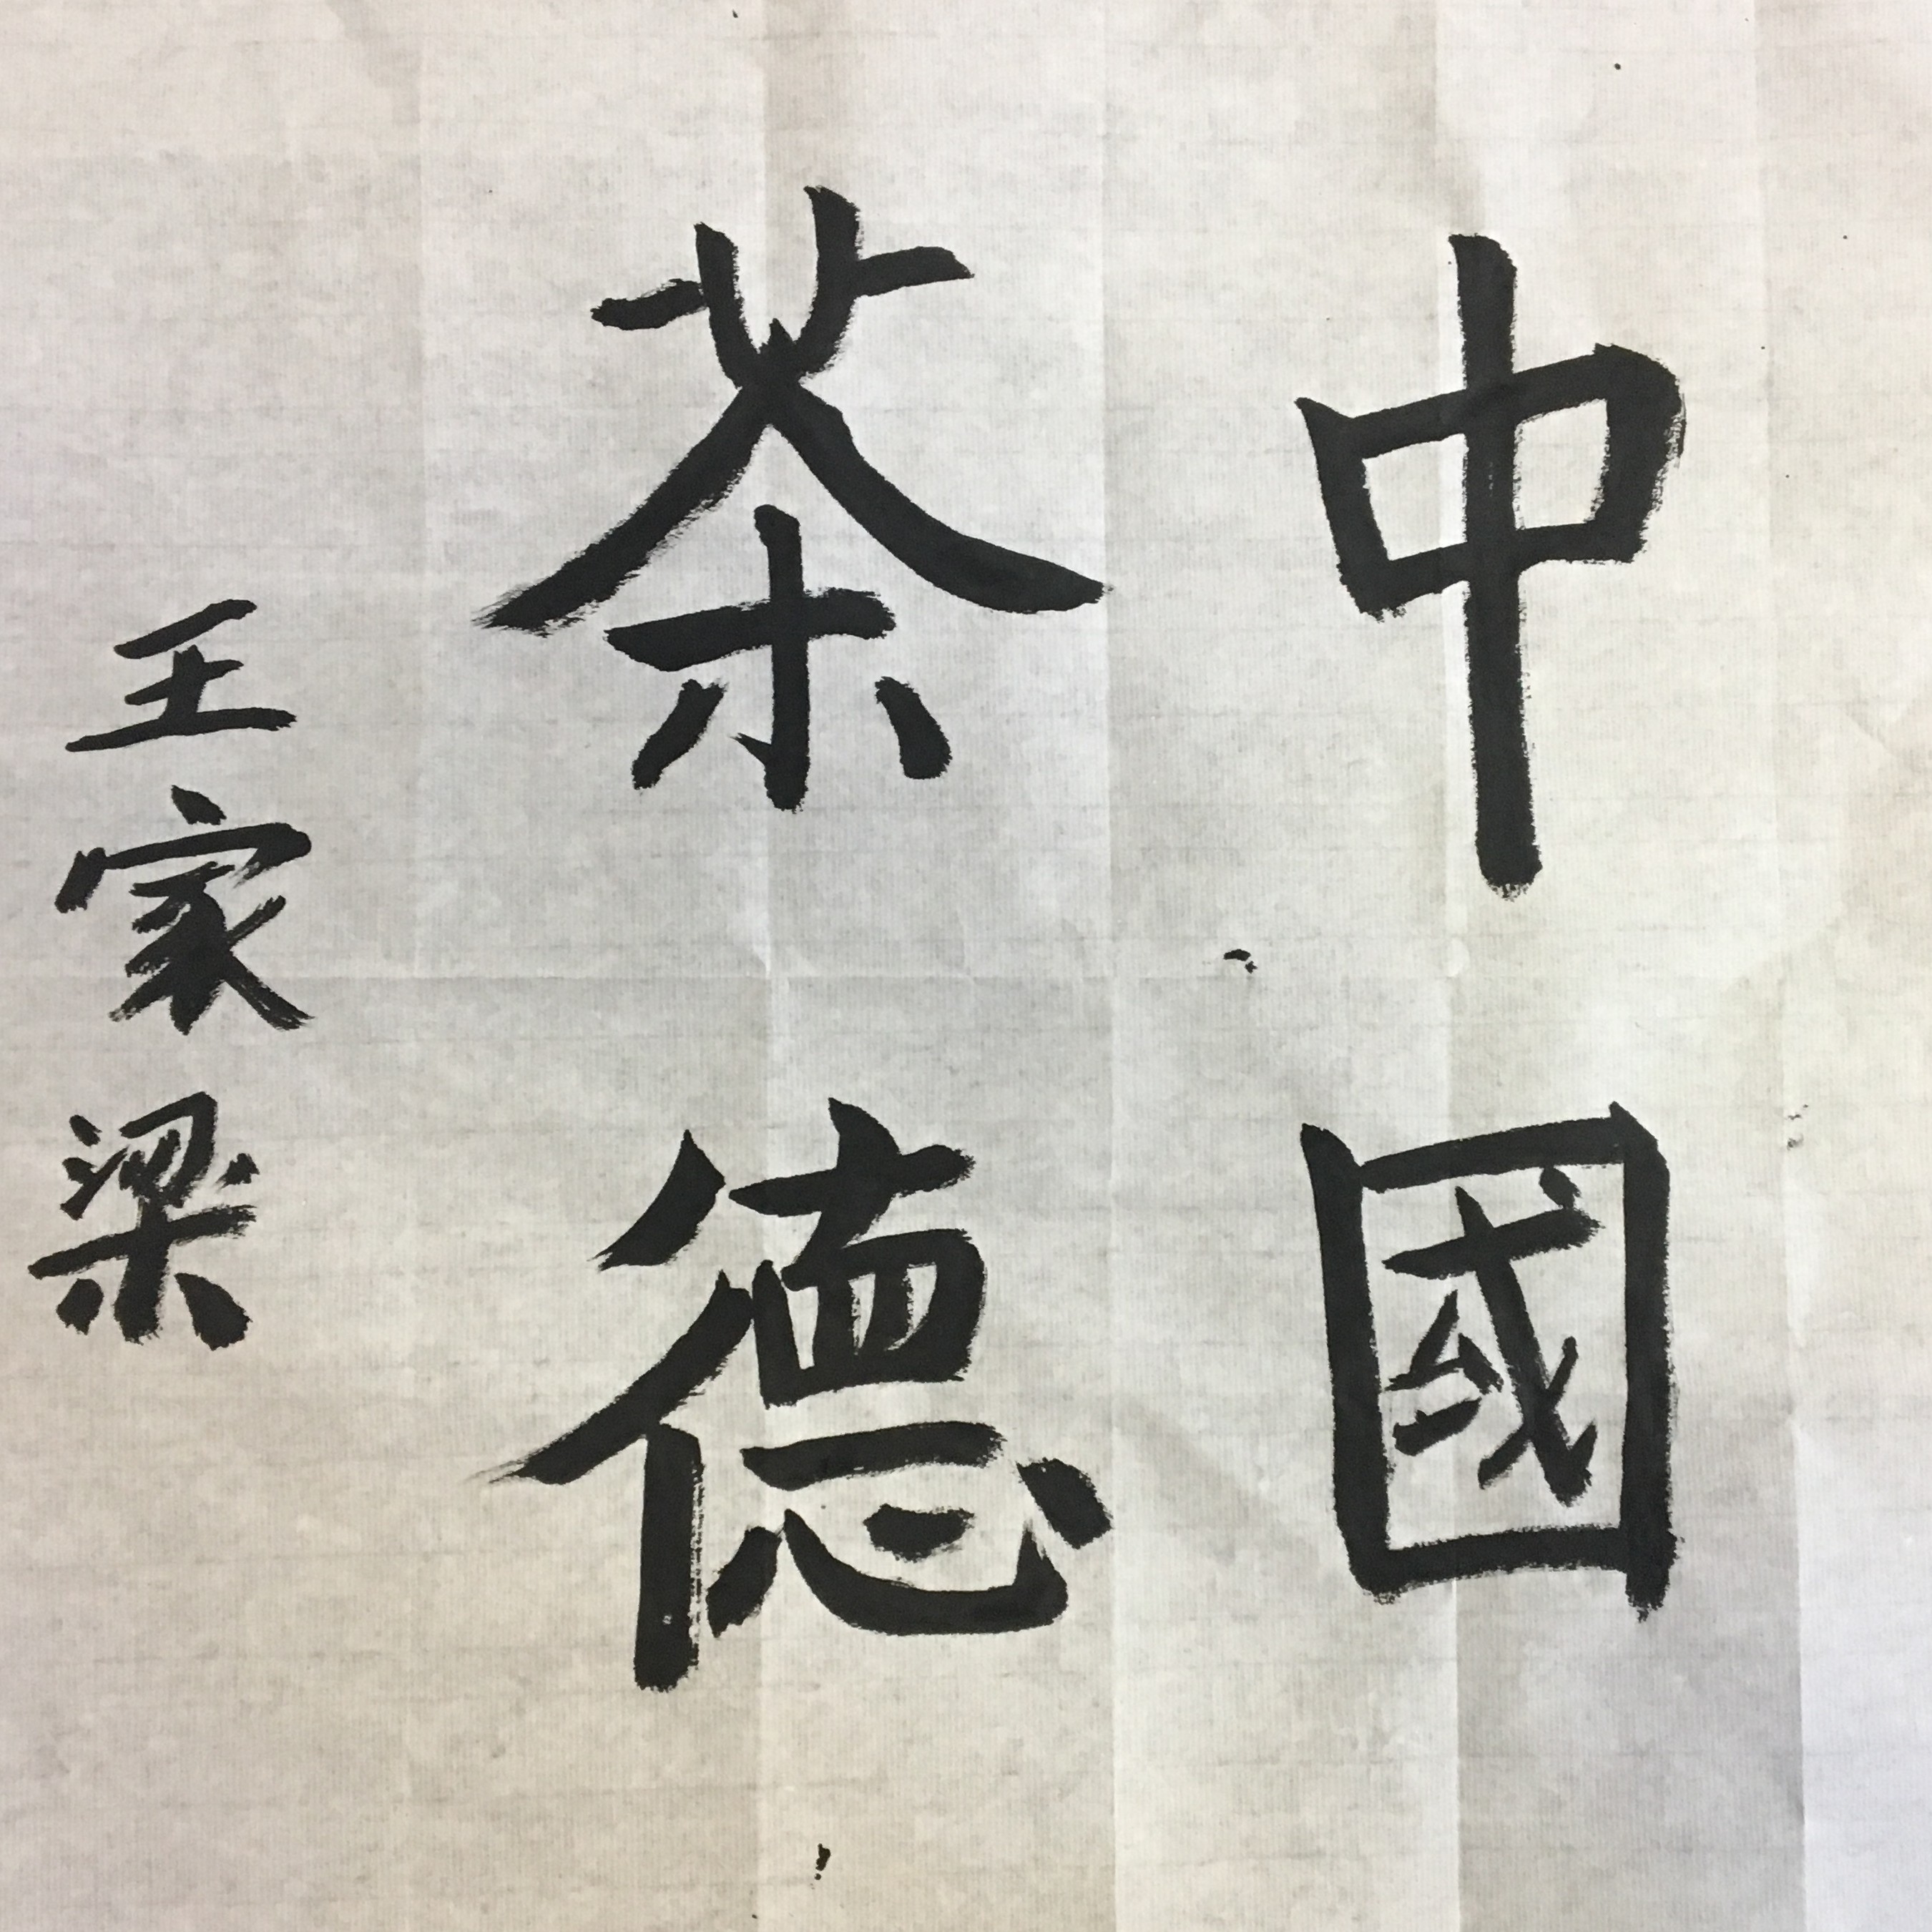 中國
茶德
王家梁